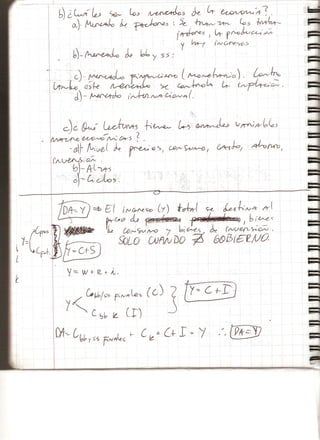 b) ¿Cuáles son los mercados de la economía?
a) Mercado de factores: Se transan los
factores, la producción
y hay ingresos
b) Mercado de bb y ss:
c) Mercado financiero (Monetario). Centro
este mercado se controla la inflación.
d) Mercado internacional.
c) ¿Qué Lecturas tienen las grandes variables
macroeconómicas?
a) Nivel de precios, consumo, Gasto, Ahorro,
inversión
b) Alzas
c) Ciclos.
DA=Y => El ingreso (Y) total se destina al
de bienes
de consumo y bienes de inversión.
SOLO CUANDO ∄ GOBIERNO.
Y=C+S
Y = W + R + i.
Cbb/ss finales (C)
Y=C+I
Y
C bb k (I)
DA= Cbb y ss finales + Ck = C + I = Y ∴ DA=Y